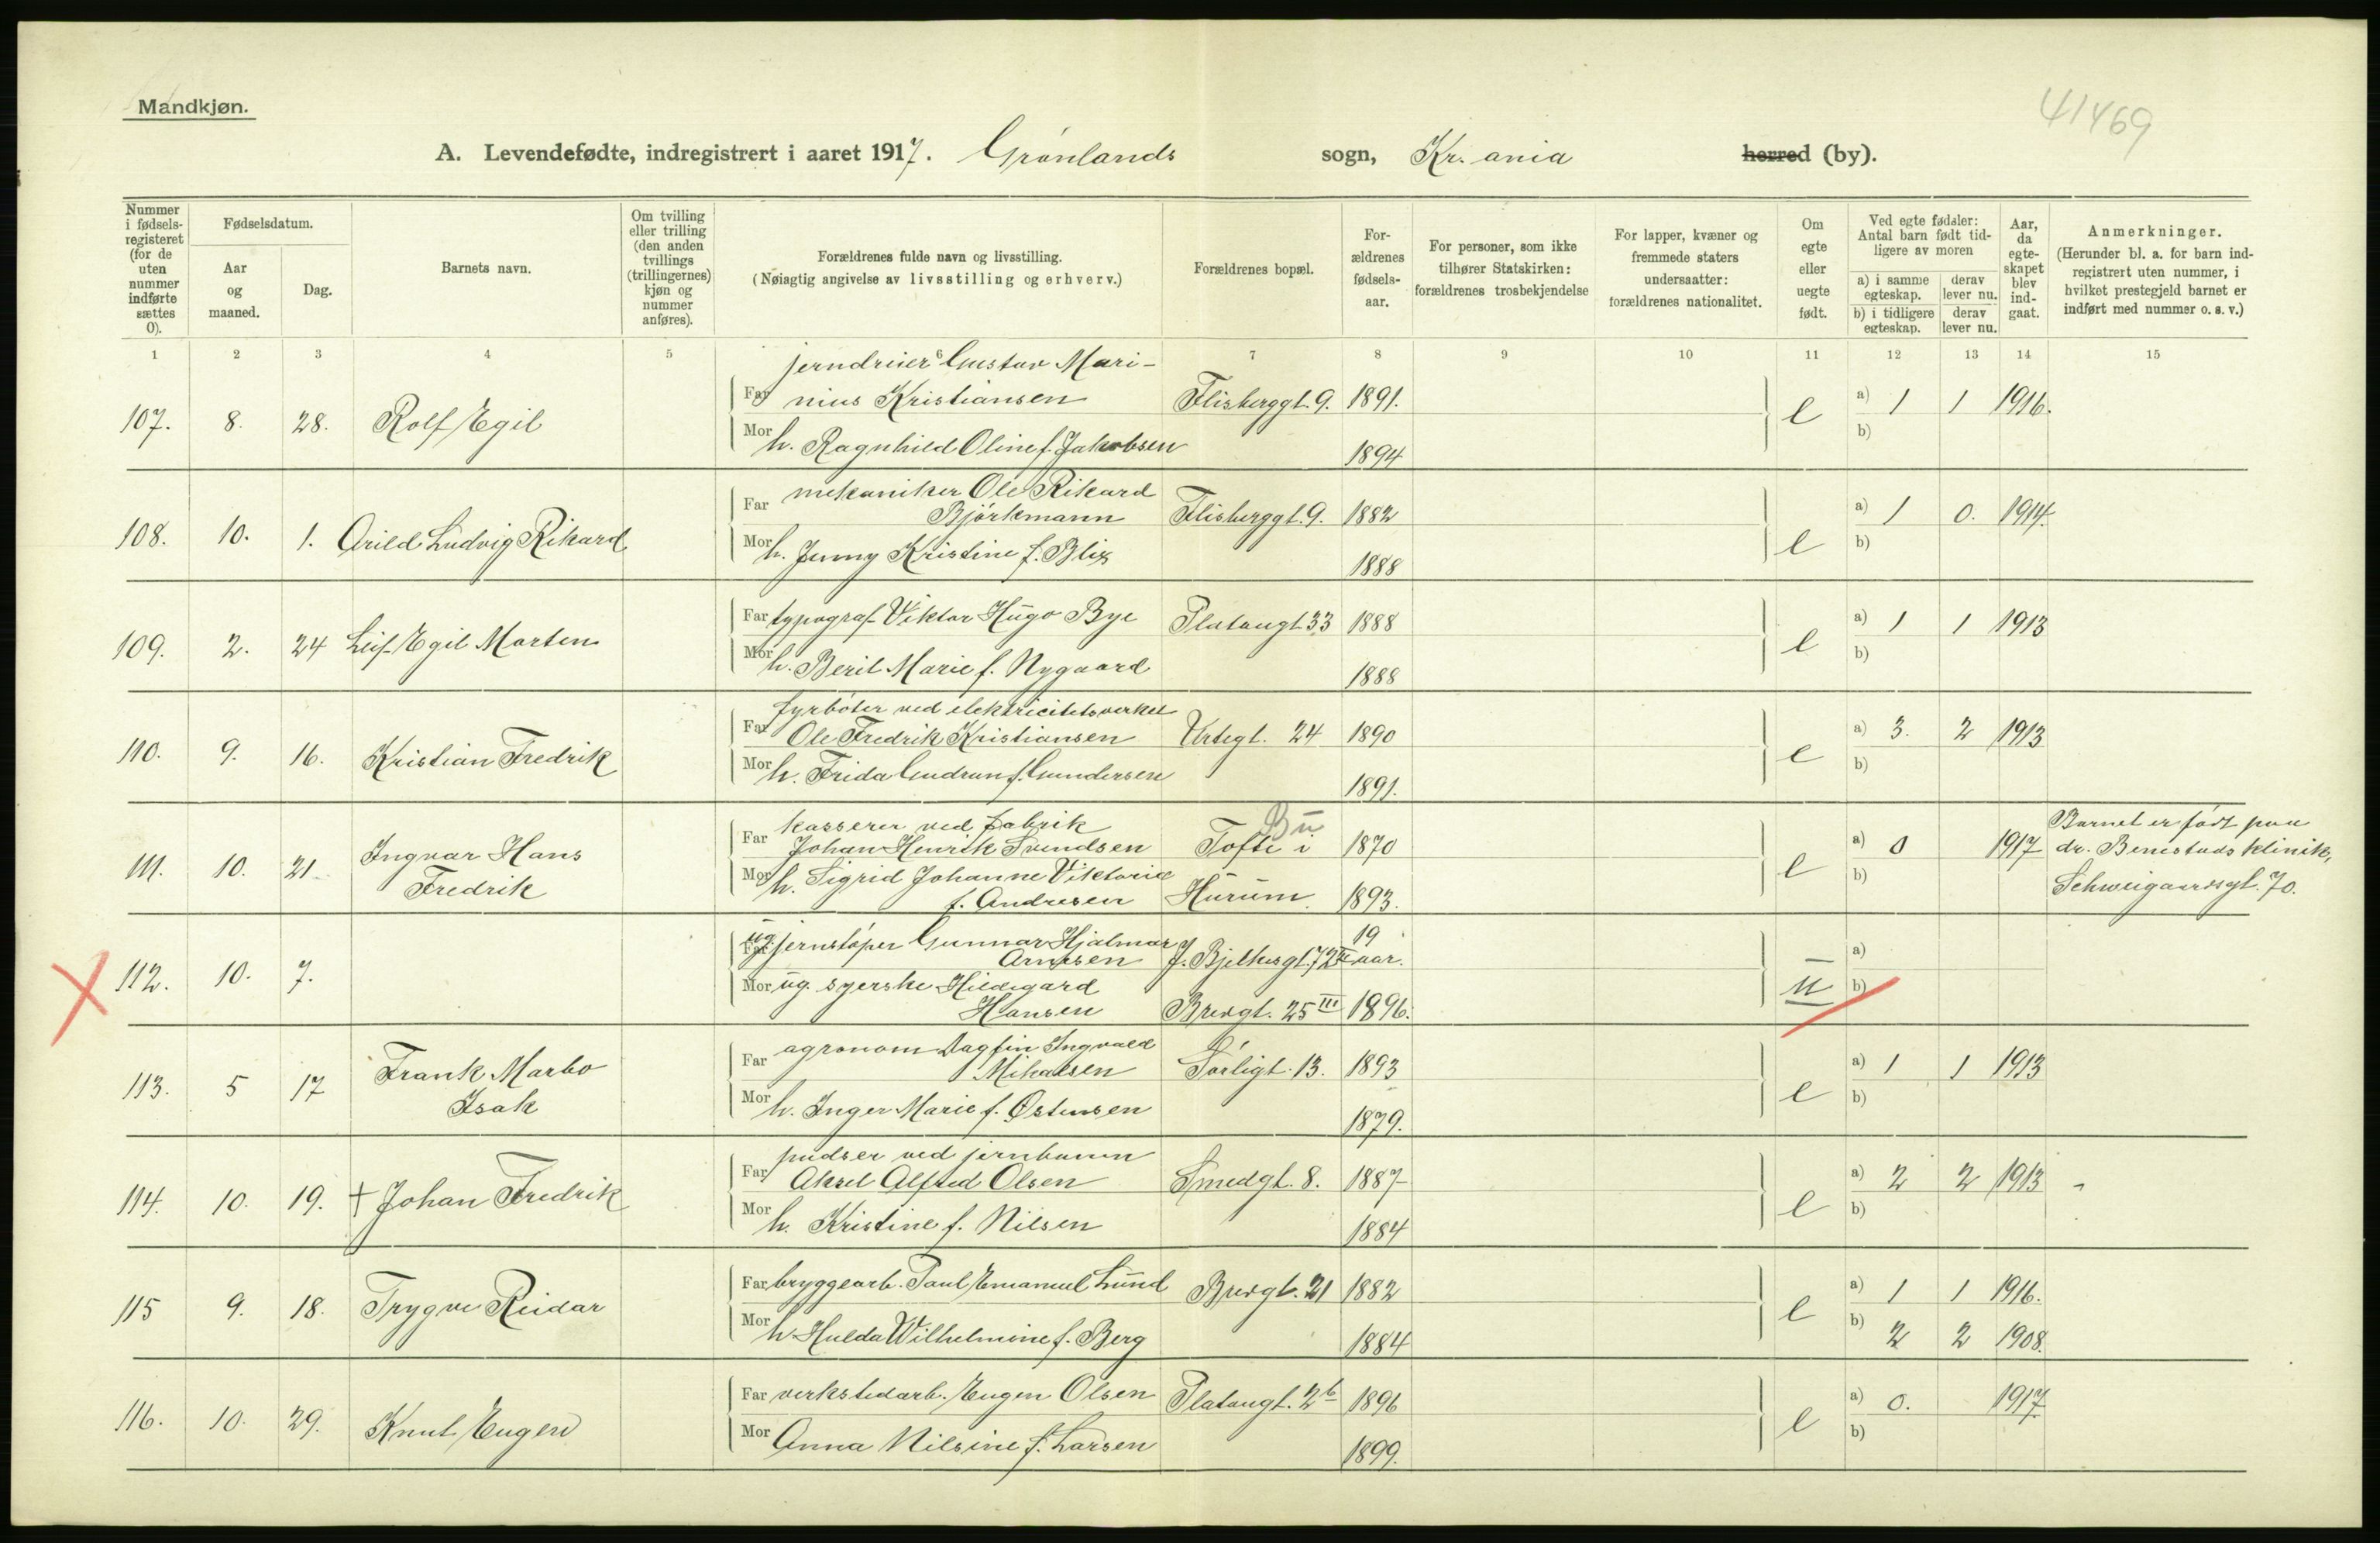 Mandkjøn.
41469
A. Levendefødte, indregistrert i aaret 1917. Grønlands sogn, Kr. ania herred (by).
Nummer i fødselsregisteret (for de uten nummer indførte sættes 0).
Fødselsdatum.
Aar og maaned.
Dag.
Barnets navn.
Om tvilling eller trilling (den anden tvillings (trillingernes) kjøn og nummer anføres).
Forældrenes fulde navn og livsstilling.
(Nøiagtig angivelse av livsstilling og erhverv.)
Forældrenes bopæl.
Forældrenes fødselsaar.
For personer, som ikke tilhører Statskirken: forældrenes trosbekjendelse
For lapper, kvæner og fremmede staters undersaatter: forældrenes nationalitet.
Om egte eller uegte født.
Ved egte fødsler: Antal barn født tidligere av moren
a) i samme egteskap. derav lever nu.
b) i tidligere egteskap. derav lever nu.
Aar, da egteskapet blev indgaat.
Anmerkninger.
(Herunder bl. a. for barn indregistrert uten nummer, i hvilket prestegjeld barnet er indført med nummer o. s. v.)
1 2 3 4 5 6 7 8 9 10 11 12 13 14 15
jerndreier Gustav Mari-
Far nius Kristiansen Flisberggt. 9. 1891. a) 1 1 1916.
107. 8. 28. Rolf Egil e
Mor h. Ragnhild Oline f. Jakobsen 1894 b)
Far mekaniker Ole Rikard
Björkmann Flisberggt. 9. 1882 a) 1 0. 1914.
108. 10. 1. Arild Ludvig Rikard e
Mor h. Jenny Kristine f. Blix 1888 b)
Far typograf Viktor Hugo Bye Platougt 33 1888 a) 1 1 1913
109. 2. 24 Leif Egil Morten e
Mor h. Beril Marie f. Nygaard 1888 b)
fyrbøter ved elektricitetsverket
Far Ole Fredrik Kristiansen Urtegt. 24 1890 a) 3. 2 1913
110. 9. 16. Kristian Fredrik e
Mor h. Frida Gudrun f. Gundersen 1891. b)
kasserer ved fabrik Bu Barnet er født paa
Far Johan Henrik Svendsen Tofte i 1870 a) 0 1917 dr. Benestads klinik,
111. 10. 21. Ingvar Hans Fredrik e Schweigaardsgt. 70.
Mor h. Sigrid Johanne Viktoria
f. Andresen Hurum. 1893. b)
Far ug. jernstøper Gunnar Hjalmar 19
Arnesen J. Bjelkesgt. 72 II aar. a)
112. 10. 7. u
Mor ug. syerske Hildegard
Hansen Breigt. 25 III 1896. b)
Far agronom Dagfin Ingvald
Mikalsen Sørligt. 13. 1893 a) 1 1 1913
113. 5 17 Frank Marbo Isak e
Mor h. Inger Marie f. Østensen 1879. b)
pudser ved jernbanen
Far Aksel Alfred Olsen Smedgt. 8. 1887 a) 2 2 1913 -
114. 10. 19. + Johan Fredrik e
Mor h. Kristine f. Nilsen 1884 b)
Far bryggearb. Paul Emanuel Lund Breigt. 21 1882 a) 1 1 1916.
115 9. 18. Trygve Reidar e
Mor h. Hulda Wilhelmine f. Berg 1884 b) 2 2 1908.
Far verkstedarb. Eugen Olsen Platougt. 2b 1896 a) 0. 1917.
116. 10. 29. Knut Eugen e
Mor Anna Nilsine f. Larsen 1899. b)